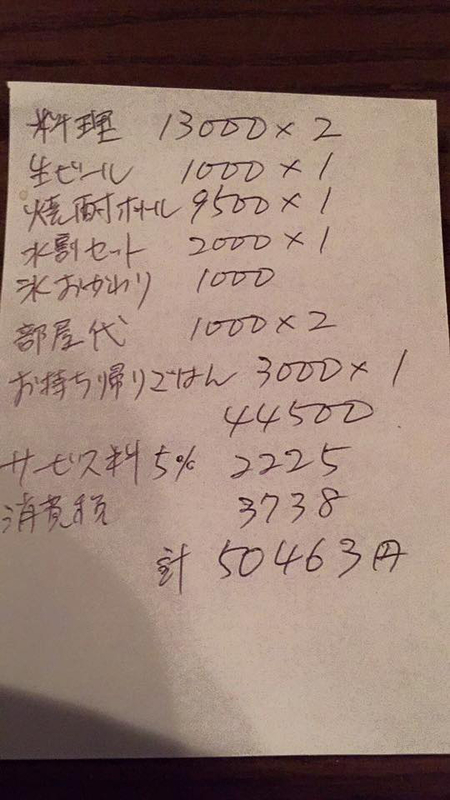 料理 13000×2
生ビール 1000×1
焼酎ボトル 9500×1
水割セット 2000×1
氷おかわり 1000
部屋代 1000×2
お持ち帰りごはん 3000×1
44500
サービス料5% 2225
消費税 3738
計 50463円